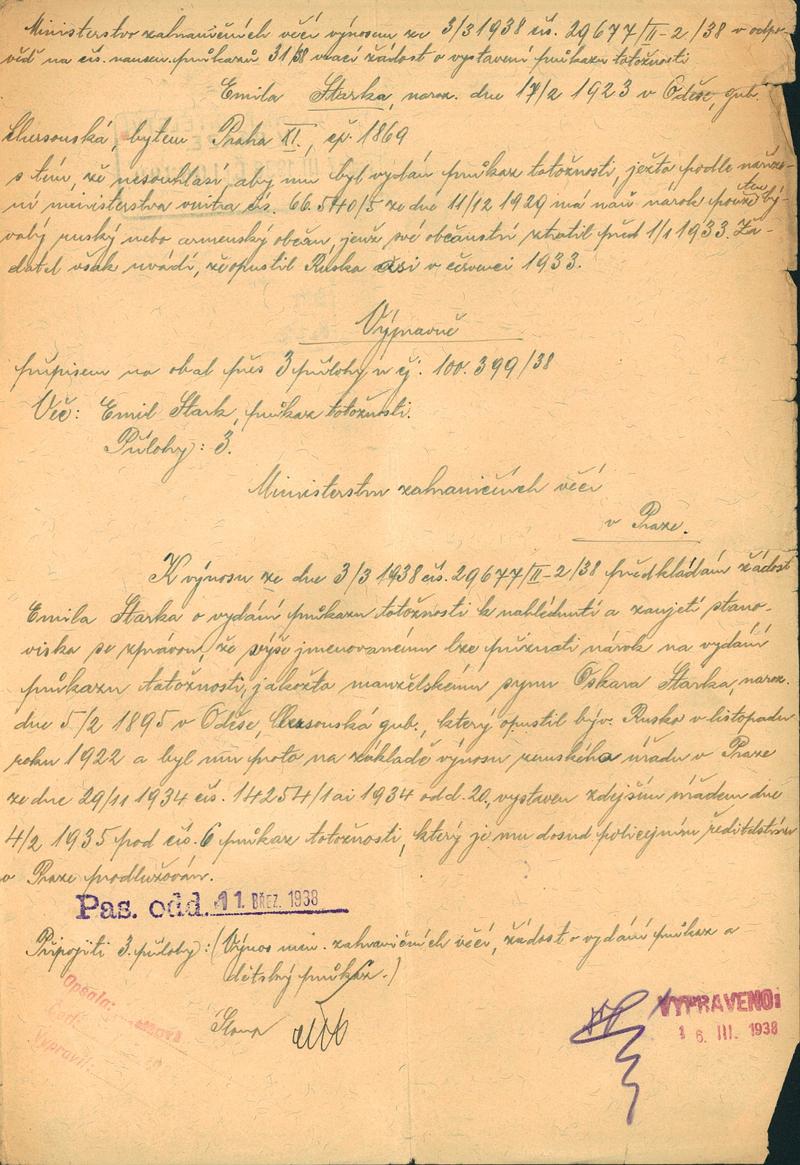 Ministerstvo zahraničních věcí výnosem ze 3/3 1938 čís. 29677/II-2/38 v odpo-
věď na čís. nansen. průkazů 31/38 vrací žádost o vystavení průkazu totožnosti
Emila Starka, naroz. dne 17/2 1923 v Oděse, gub.
Chersonská, bytem Praha XI., čp. 1869
s tím, že nesouhlasí, aby mu byl vydán průkaz totožnosti, ježto podle naříze-
ní ministerstva vnitra čís. 66.540/5 ze dne 11/12 1929 má naň nárok pouze ten bý-
valý ruský nebo armenský občan, jenž své občanství ztratil před 1/1 1933. Ža-
datel však uvádí, že opustil Rusko asi v červenci 1933.
Výpravně
přípisem na obal přes 3 přílohy v čj. 100.399/38
Věc: Emil Stark, průkaz totožnosti.
Přílohy: 3.
Ministerstvu zahraničních věcí
v Praze.
K výnosu ze dne 3/3 1938 čís. 29677/II-2/38 předkládám žádost
Emila Starka o vydání průkazu totožnosti k nahlédnutí a zaujetí stano-
viska se zprávou, že výše jmenovanému lze přiznati nárok na vydání
průkazu totožnosti, jakožto manželskému synu Oskara Starka, naroz.
dne 5/2 1895 v Oděse, Chersonská gub., který opustil býv. Rusko v listopadu
roku 1922 a byl mu proto na základě výnosu zemského úřadu v Praze
ze dne 29/11 1934 čís. 14254/1ai 1934 odd. 20, vystaven zdejším úřadem dne
4/2 1935 pod čís. 6 průkaz totožnosti, který je mu dosud policejním ředitelstvím
v Praze prodlužován.
Pas. odd. 11. BŘEZ. 1938
Připojiti 3 přílohy: (Výnos min. zahraničních věcí, žádost o vydání průkaz a
dětský průkaz.)
Opsala:
Vypravil:
VYPRAVENO:
16. III. 1938